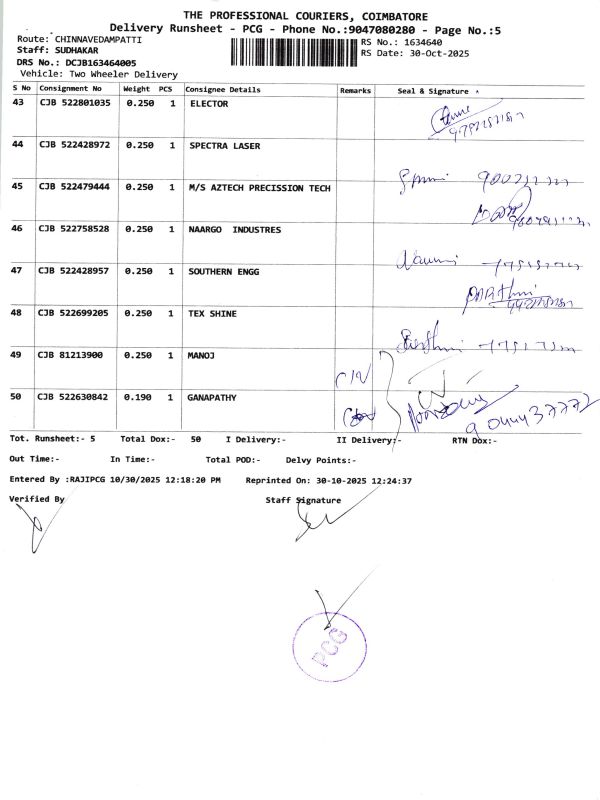 THE PROFESSIONAL COURIERS, COIMBATORE
Delivery Runsheet - PCG - Phone No.:9047080280 - Page No.:5
Route: CHINNAVEDAMPATTI RS No.: 1634640
Staff: SUDHAKAR RS Date: 30-Oct-2025
DRS No.: DCJB163464005
Vehicle: Two Wheeler Delivery
S No Consignment No Weight PCS Consignee Details Remarks Seal & Signature
43 CJB 522801035 0.250 1 ELECTOR
44 CJB 522428972 0.250 1 SPECTRA LASER
45 CJB 522479444 0.250 1 M/S AZTECH PRECISSION TECH
46 CJB 522758528 0.250 1 NAARGO INDUSTRES
47 CJB 522428957 0.250 1 SOUTHERN ENGG
48 CJB 522699205 0.250 1 TEX SHINE
49 CJB 81213900 0.250 1 MANOJ
50 CJB 522630842 0.190 1 GANAPATHY
Tot. Runsheet:- 5 Total Dox:- 50 I Delivery:- II Delivery:- RTN Dox:-
Out Time:- In Time:- Total POD:- Delvy Points:-
Entered By :RAJIPCG 10/30/2025 12:18:20 PM Reprinted On: 30-10-2025 12:24:37
Verified By Staff Signature
PCG